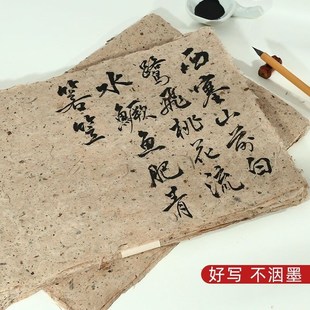 西塞山前白
鹭飞桃花流
水鳜鱼肥青
箬笠
好写 不洇墨